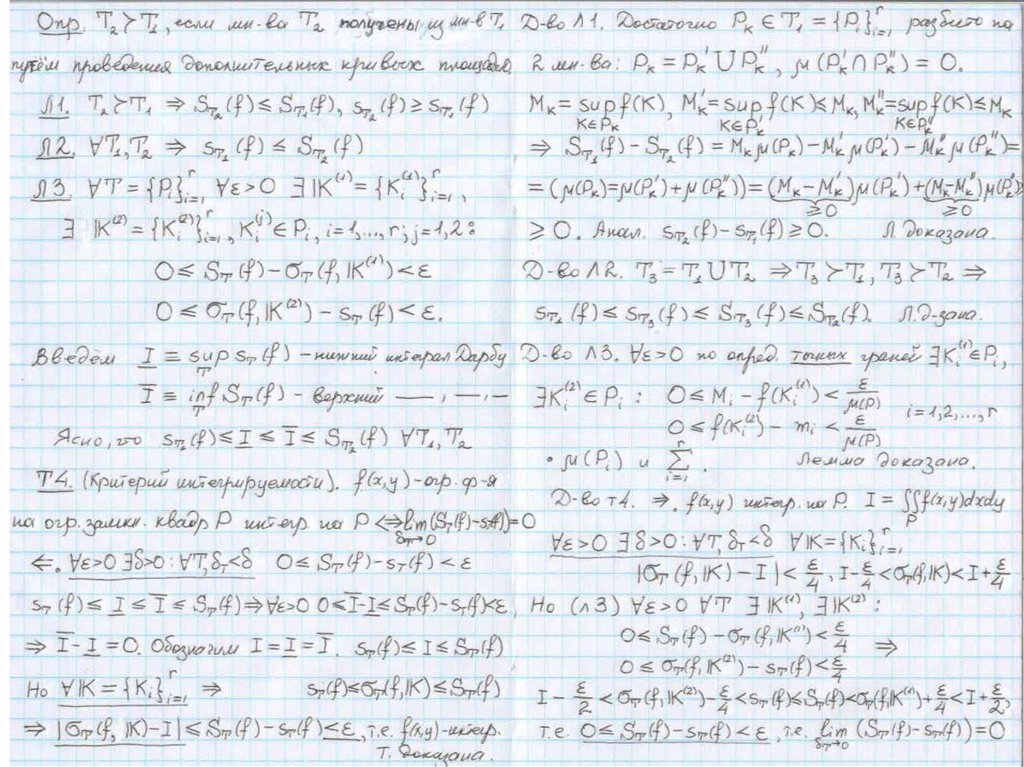 Опр. T₂≻T₁, если мн-ва T₂ получены из мн-в T₁
путём проведения дополнительных кривых площади 0.
Л1. T₂≻T₁ ⇒ S_T₂(f) ≤ S_T₁(f), s_T₂(f) ≥ s_T₁(f)
Л2. ∀T₁,T₂ ⇒ s_T₁(f) ≤ S_T₂(f)
Л3. ∀T = {Pᵢ}ʳᵢ₌₁ ∀ε>0 ∃ 𝕂⁽¹⁾ = {Kᵢ⁽¹⁾}ʳᵢ₌₁,
∃ 𝕂⁽²⁾ = {Kᵢ⁽²⁾}ʳᵢ₌₁, Kᵢ⁽ʲ⁾ ∈ Pᵢ, i=1,...,r; j=1,2:
0 ≤ S_T(f) − σ_T(f, 𝕂⁽¹⁾) < ε
0 ≤ σ_T(f, 𝕂⁽²⁾) − s_T(f) < ε.
Введём I̲ ≡ sup_T s_T(f) – нижний интеграл Дарбу
I̅ ≡ inf_T S_T(f) – верхний —,—,—
Ясно, что s_T₁(f) ≤ I̲ ≤ I̅ ≤ S_T₂(f) ∀T₁,T₂
Т4. (Критерий интегрируемости). f(x,y)-огр. ф-я
на огр. замкн. квадр P интегр. на P ⇔ lim_{δ_T→0}(S_T(f)-s_T(f))=0
⇐. ∀ε>0 ∃δ>0: ∀T, δ_T<δ 0 ≤ S_T(f) − s_T(f) < ε
s_T(f) ≤ I̲ ≤ I̅ ≤ S_T(f) ⇒ ∀ε>0 0 ≤ I̅-I̲ ≤ S_T(f)-s_T(f)<ε,
⇒ I̅-I̲ = 0. Обозначим I = I̲ = I̅. s_T(f) ≤ I ≤ S_T(f)
Но ∀𝕂 = {Kᵢ}ʳᵢ₌₁ ⇒ s_T(f) ≤ σ_T(f,𝕂) ≤ S_T(f)
⇒ |σ_T(f,𝕂)-I| ≤ S_T(f)-s_T(f) ≤ ε, т.е. f(x,y)-интегр.
Т. доказана.
Д-во Л1. Достаточно P_k ∈ T₁ = {Pᵢ}ʳᵢ₌₁ разбито на
2 мн-ва: P_k = P_k′ ∪ P_k″, μ(P_k′ ∩ P_k″) = 0.
M_k = sup_{K∈P_k} f(K), M_k′ = sup_{K∈P_k′} f(K) ≤ M_k, M_k″ = sup_{K∈P_k″} f(K) ≤ M_k
⇒ S_T₁(f) − S_T₂(f) = M_k μ(P_k) − M_k′ μ(P_k′) − M_k″ μ(P_k″) =
= (μ(P_k)=μ(P_k′)+μ(P_k″)) = (M_k−M_k′)μ(P_k′) + (M_k−M_k″)μ(P_k″)
≥0 ≥0
≥ 0. Анал. s_T₂(f) − s_T₁(f) ≥ 0. Л. доказана.
Д-во Л2. T₃ = T₁ ∪ T₂ ⇒ T₃≻T₁, T₃≻T₂ ⇒
s_T₁(f) ≤ s_T₃(f) ≤ S_T₃(f) ≤ S_T₂(f). Л. д-зана.
Д-во Л3. ∀ε>0 по опред. точных граней ∃Kᵢ⁽¹⁾∈Pᵢ,
∃Kᵢ⁽²⁾ ∈ Pᵢ : 0 ≤ Mᵢ − f(Kᵢ⁽¹⁾) < ε/μ(P)
0 ≤ f(Kᵢ⁽²⁾) − mᵢ < ε/μ(P) i=1,2,...,r
• μ(Pᵢ) и ∑ʳᵢ₌₁. Лемма доказана.
Д-во т4. ⇒. f(x,y) интегр. на P. I = ∬_P f(x,y)dxdy
∀ε>0 ∃δ>0: ∀T, δ_T<δ ∀𝕂={Kᵢ}ʳᵢ₌₁
|σ_T(f,𝕂) − I| < ε/4, I-ε/4 < σ_T(f,𝕂) < I+ε/4
Но (Л3) ∀ε>0 ∀T ∃𝕂⁽¹⁾, ∃𝕂⁽²⁾ :
0 ≤ S_T(f) − σ_T(f,𝕂⁽¹⁾) < ε/4 ⇒
0 ≤ σ_T(f,𝕂⁽²⁾) − s_T(f) < ε/4
I − ε/2 < σ_T(f,𝕂⁽²⁾) − ε/4 < s_T(f) ≤ S_T(f) < σ_T(f,𝕂⁽¹⁾) + ε/4 < I+ε/2,
т.е. 0 ≤ S_T(f) − s_T(f) < ε, т.е. lim_{δ_T→0} (S_T(f)-s_T(f)) = 0